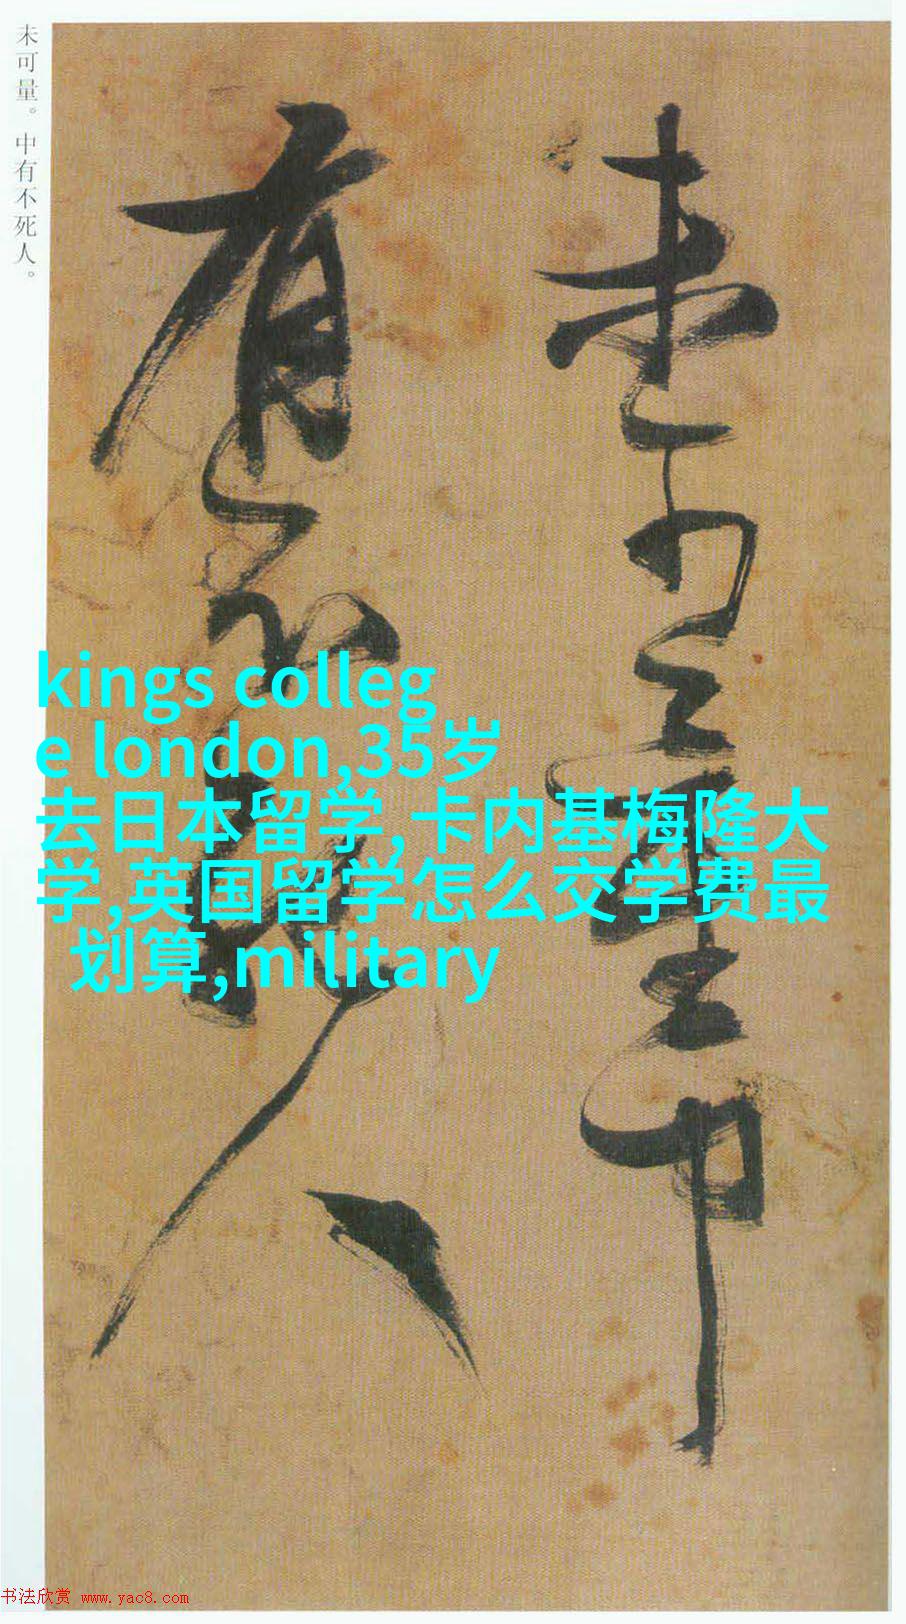 未可量。中有不死人。
未可量中
有不死人
kings colleg
e london,35岁
去日本留学,卡内基梅隆大
学,英国留学怎么交学费最
划算,military
书法欣赏 www.yac8.com